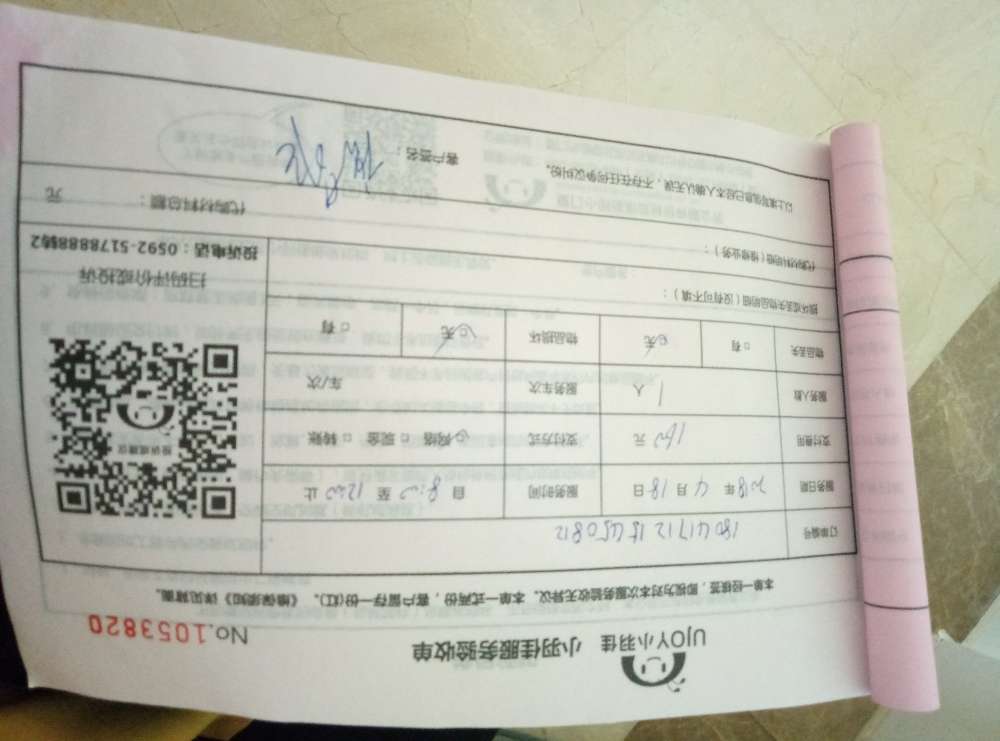 UJOY小羽佳 小羽佳服务验收单 No.1053820
本单一经核签，即视为对本次服务验收无异议。本单一式两份，客户留存一份(红)。《维保须知》详见背面。
订单编号 1804171215450812
服务日期 2018年4月18日 服务时间 自8:00至12:00止
支付费用 160元 支付方式 网络 □现金 □转账
服务人数 1人 服务车次 车/次
物品丢失 □有 □无 物品损坏 □无 □有
损坏或丢失物品明细（没有可不填）：
代购材料明细（维修业务）：
代购材料总额： 元
以上填写信息已经本人确认无误，不存在任何争议纠纷。
客户签名：
投诉或建议
扫码评价或投诉
投诉电话：0592-5178888转2